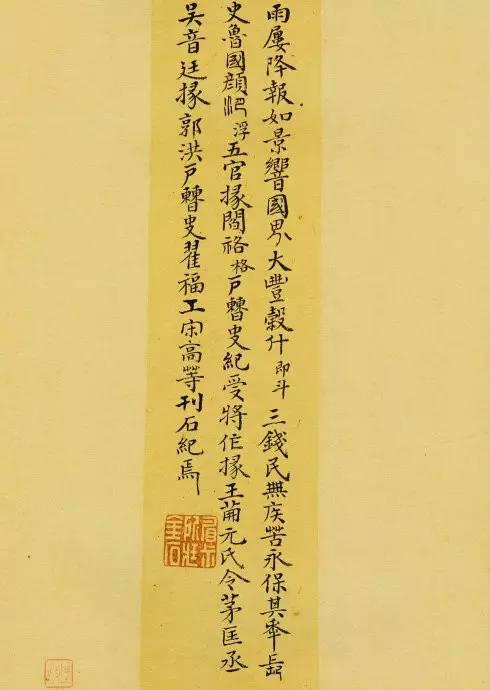 雨屢降報如景響國界大豐穀什即斗三錢民無疾苦永保其秊長
史魯國顏浥浮五官掾閻祐格戶曹史紀受將作掾王萳元氏令茅匡丞
吳音廷掾郭洪戶曹史翟福工宋高等刊石紀焉